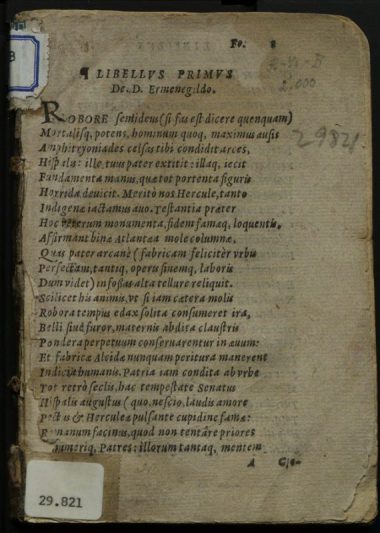 Fo. 8
¶ LIBELLVS PRIMVS
De. D. Ermenegildo.
ROBORE semideus (si fas est dicere quenquam)
Mortalisq, potens, hominum quoq, maximus ausis
Amphitryoniades celsas tibi condidit arces,
Hispalis: ille tuus pater extitit: illaq, iecit
Fundamenta manus, quæ tot portenta figuris
Horrida deuicit. Meritò nos Hercule, tanto
Indigenæ iactamus auo. Testantia præter
Hoc veterum monumenta, fidem famæq, loquentis,
Affirmant binæ Atlantæa mole columnæ,
Quas pater arcanè (fabricam feliciter vrbis
Perfectam, tantiq, operis finemq, laboris
Dum videt) infossas alta tellure reliquit.
Scilicet his animis, vt si iam cætera molis
Robora tempus edax solita consumeret ira,
Belli siuè furor, maternis abdita claustris
Pondera perpetuum conseruarentur in æuum:
Et fabricæ Alcidæ nunquam peritura manerent
Indicia humanis. Patria iam condita ab vrbe
Tot retrò seclis, hac tempestate Senatus
Hispalis augustus (quo, nescio, laudis amore
& Herculeæ pulsante cupidine famæ:
facinus, quod non tentâre priores
Patres: illorum tantaq, mentem
A
29821
2.000
29.821